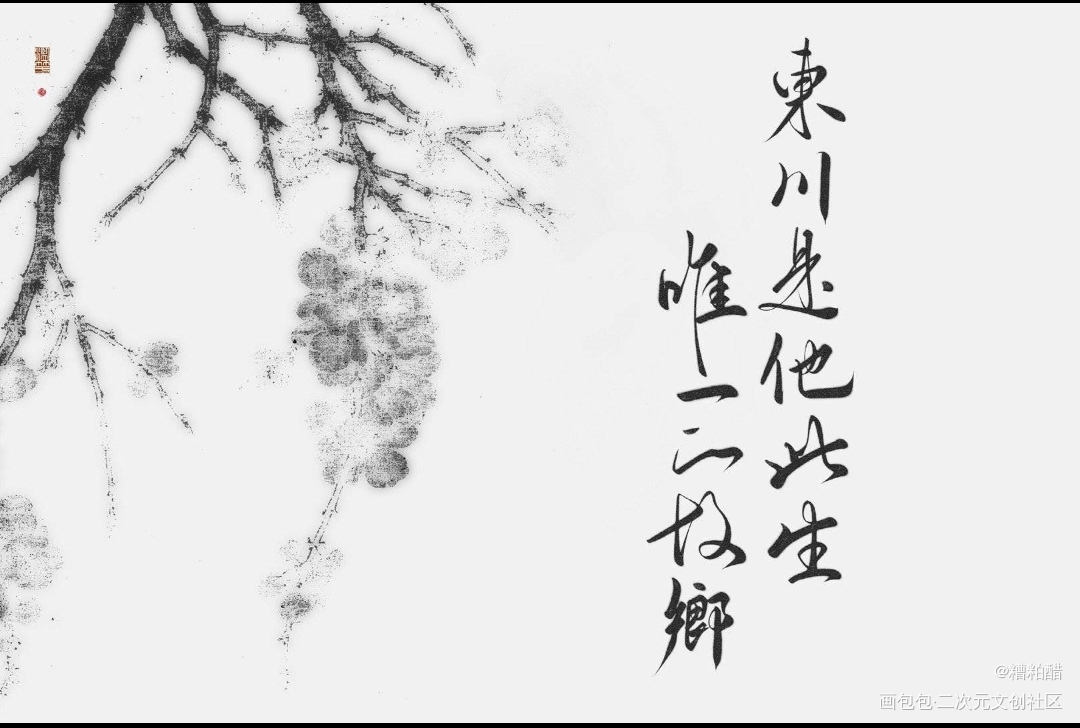 東川是他此生
唯一的故鄉
@糟粕醋
画包包·二次元文创社区